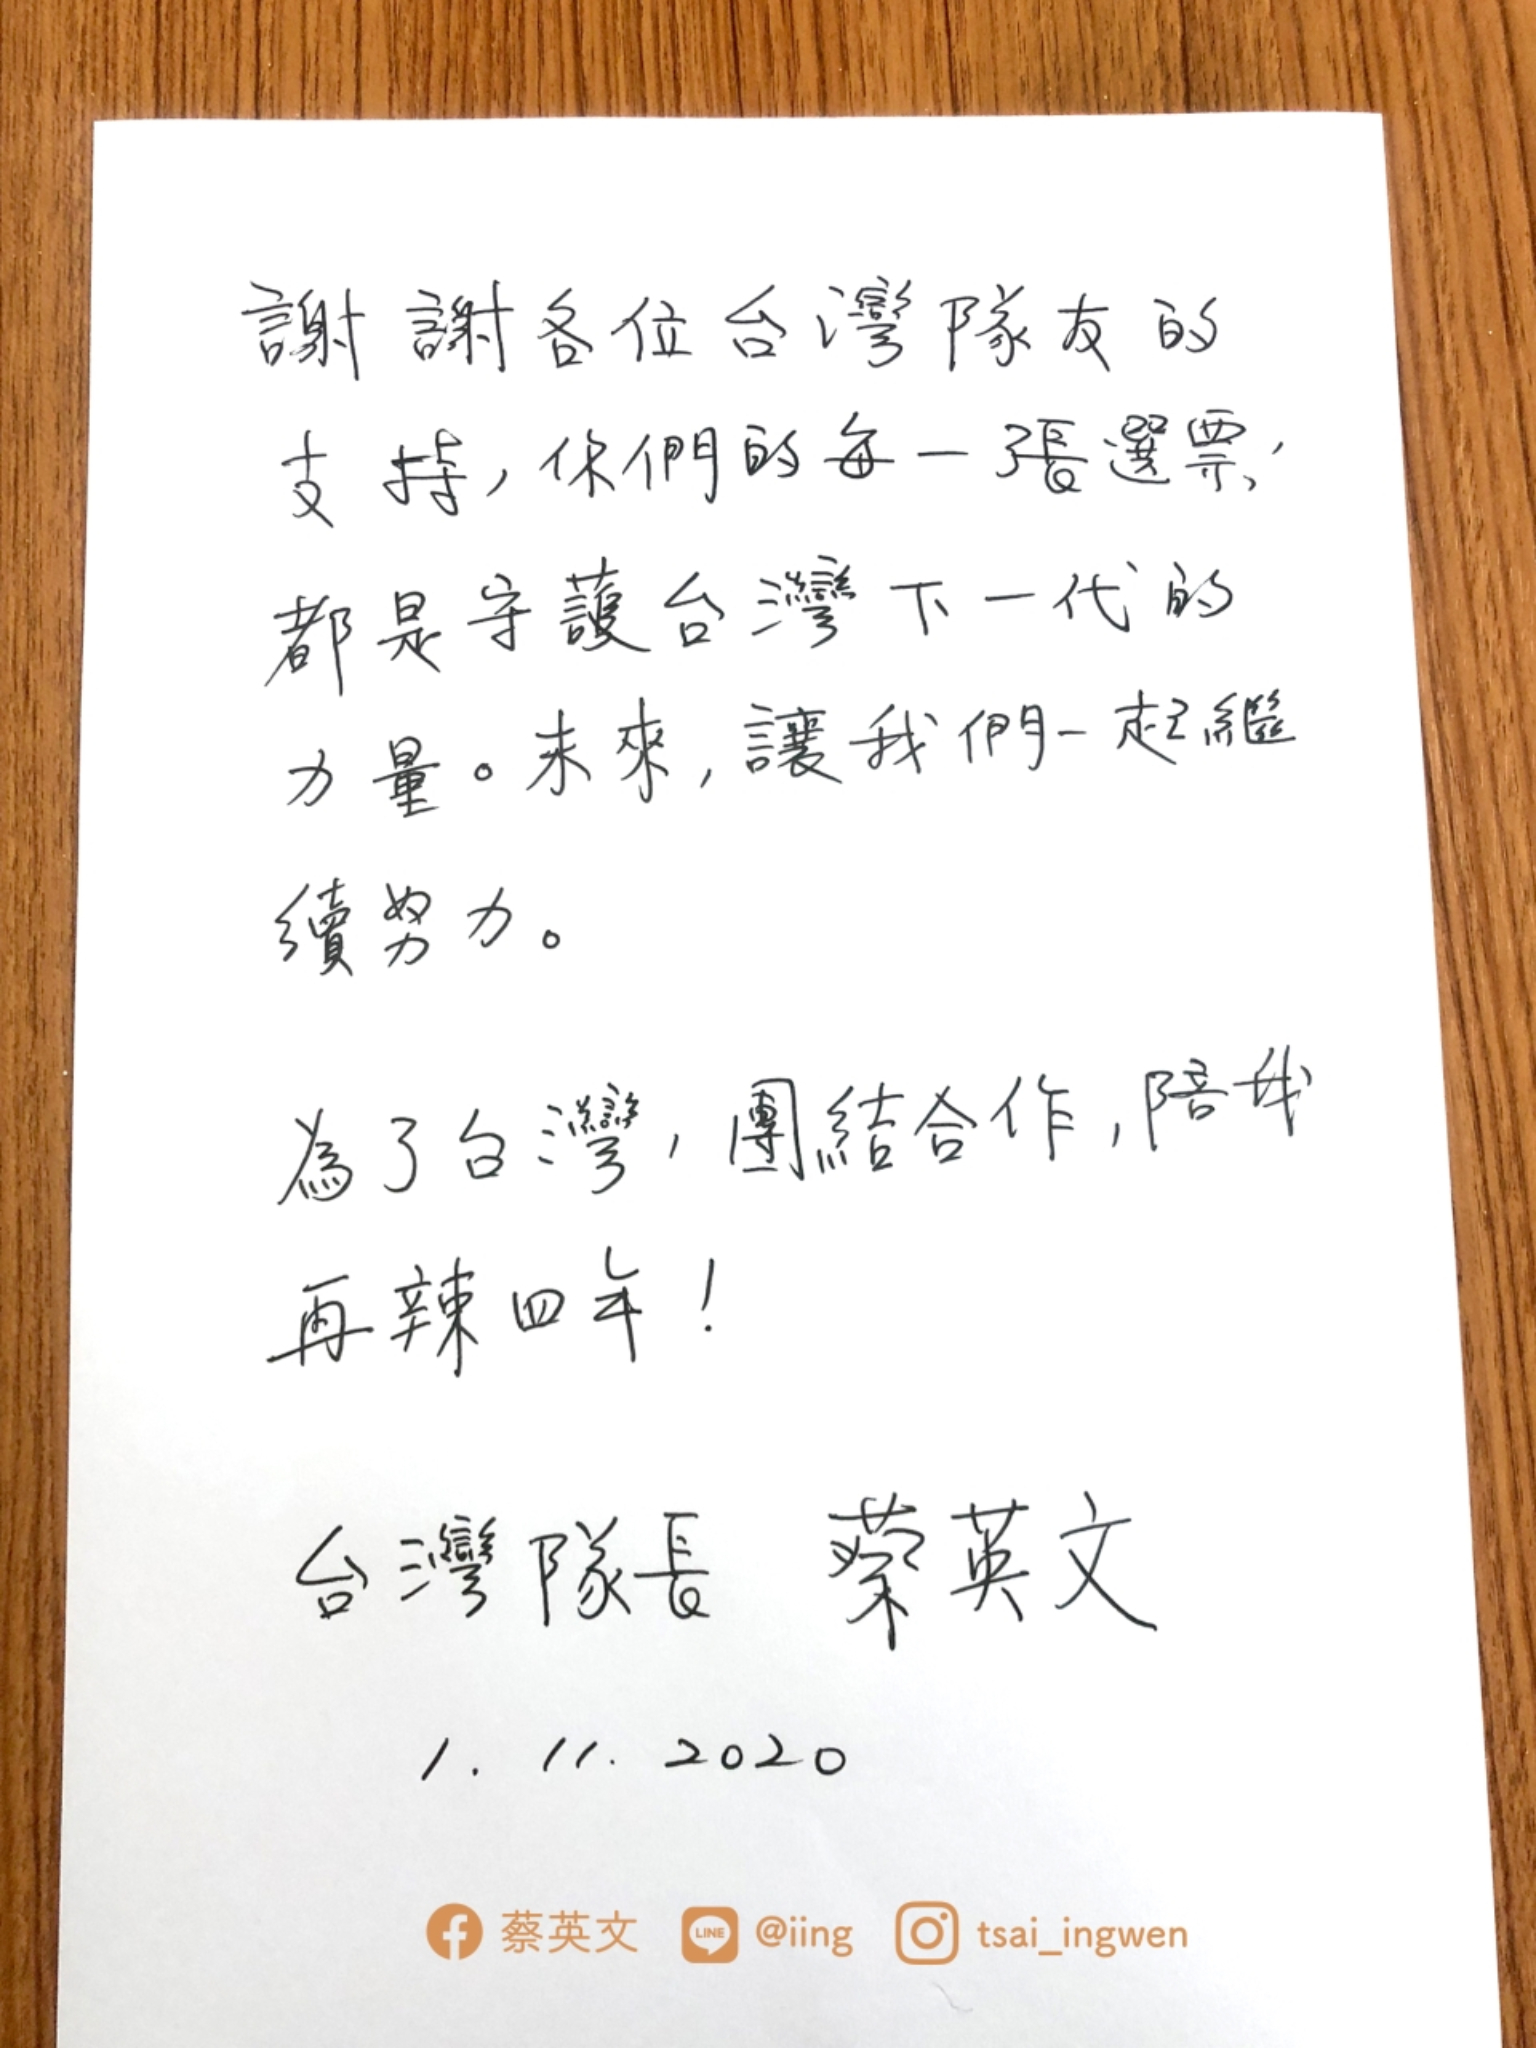 謝謝各位台灣隊友的
支持，你們的每一張選票，
都是守護台灣下一代的
力量。未來，讓我們一起繼
續努力。
為了台灣，團結合作，陪我
再辣四年！
台灣隊長 蔡英文
1. 11. 2020
蔡英文 LINE @iing tsai_ingwen